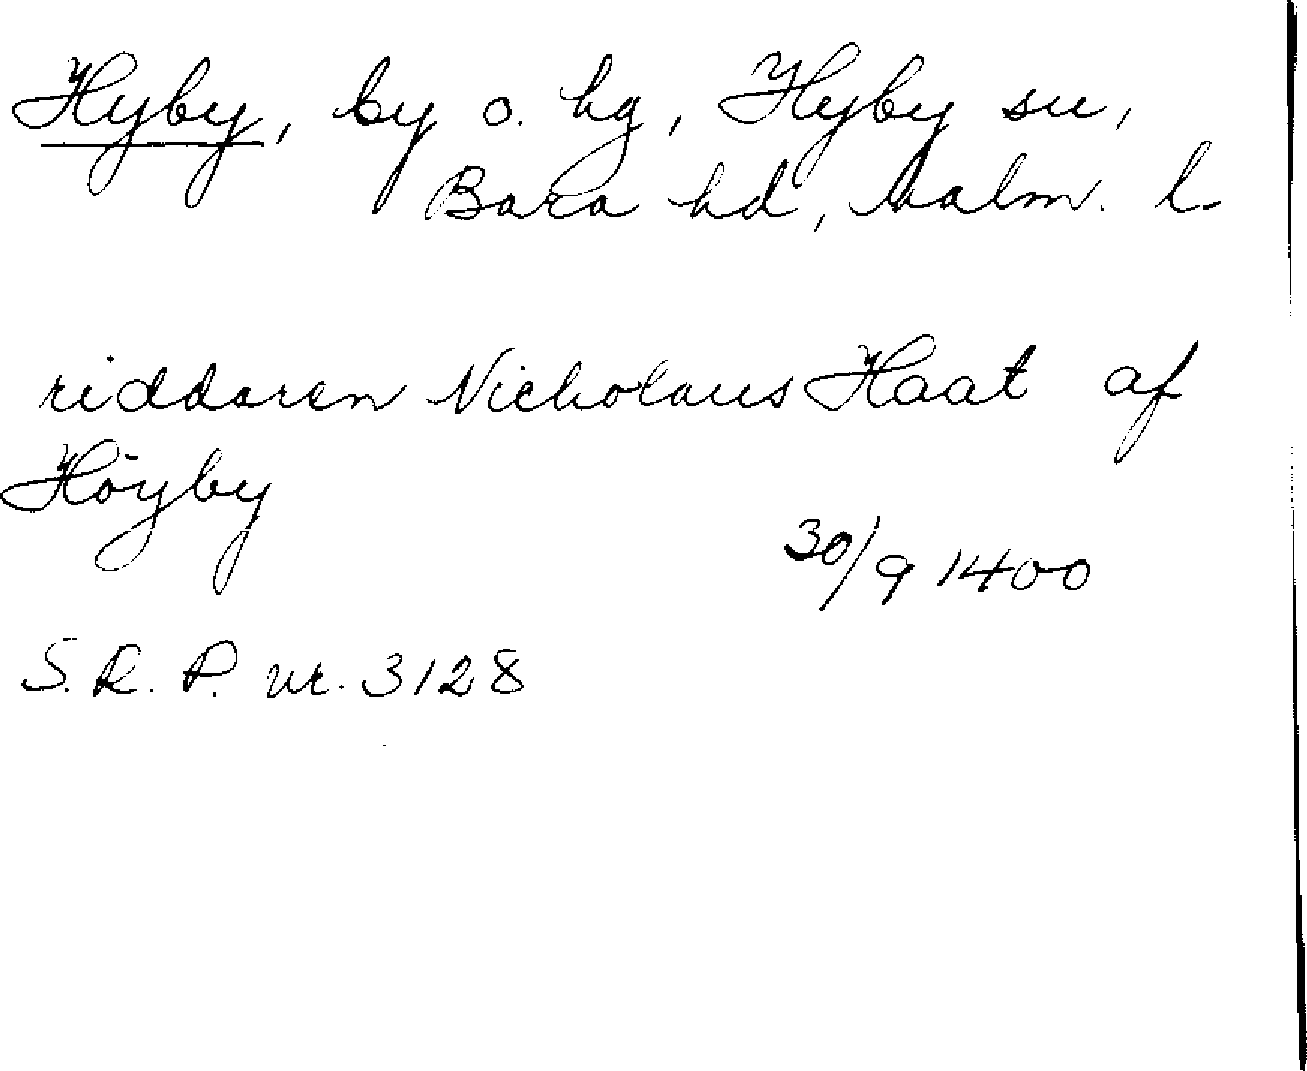 Hyby, by o. hg, Hyby sn,
Bara hd, Malm. l.
riddaren Nicholaus Haat af
Höyby
30/9 1400
S. R. P. nr. 3128